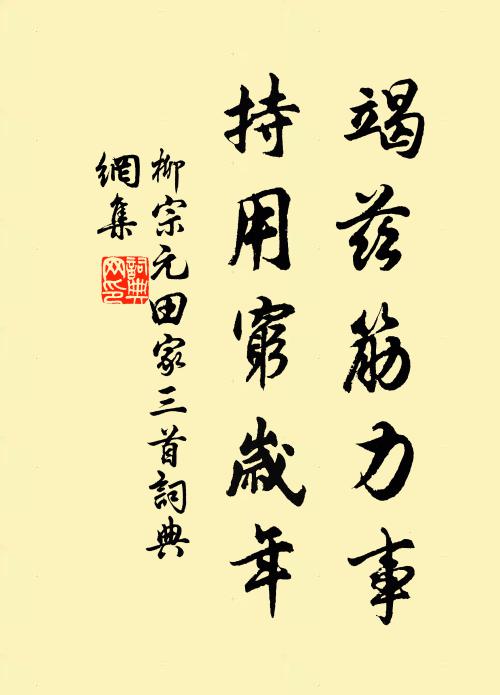 竭茲筋力事
持用窮歲年
柳宗元田家三首詞典
網集
詞典
网印